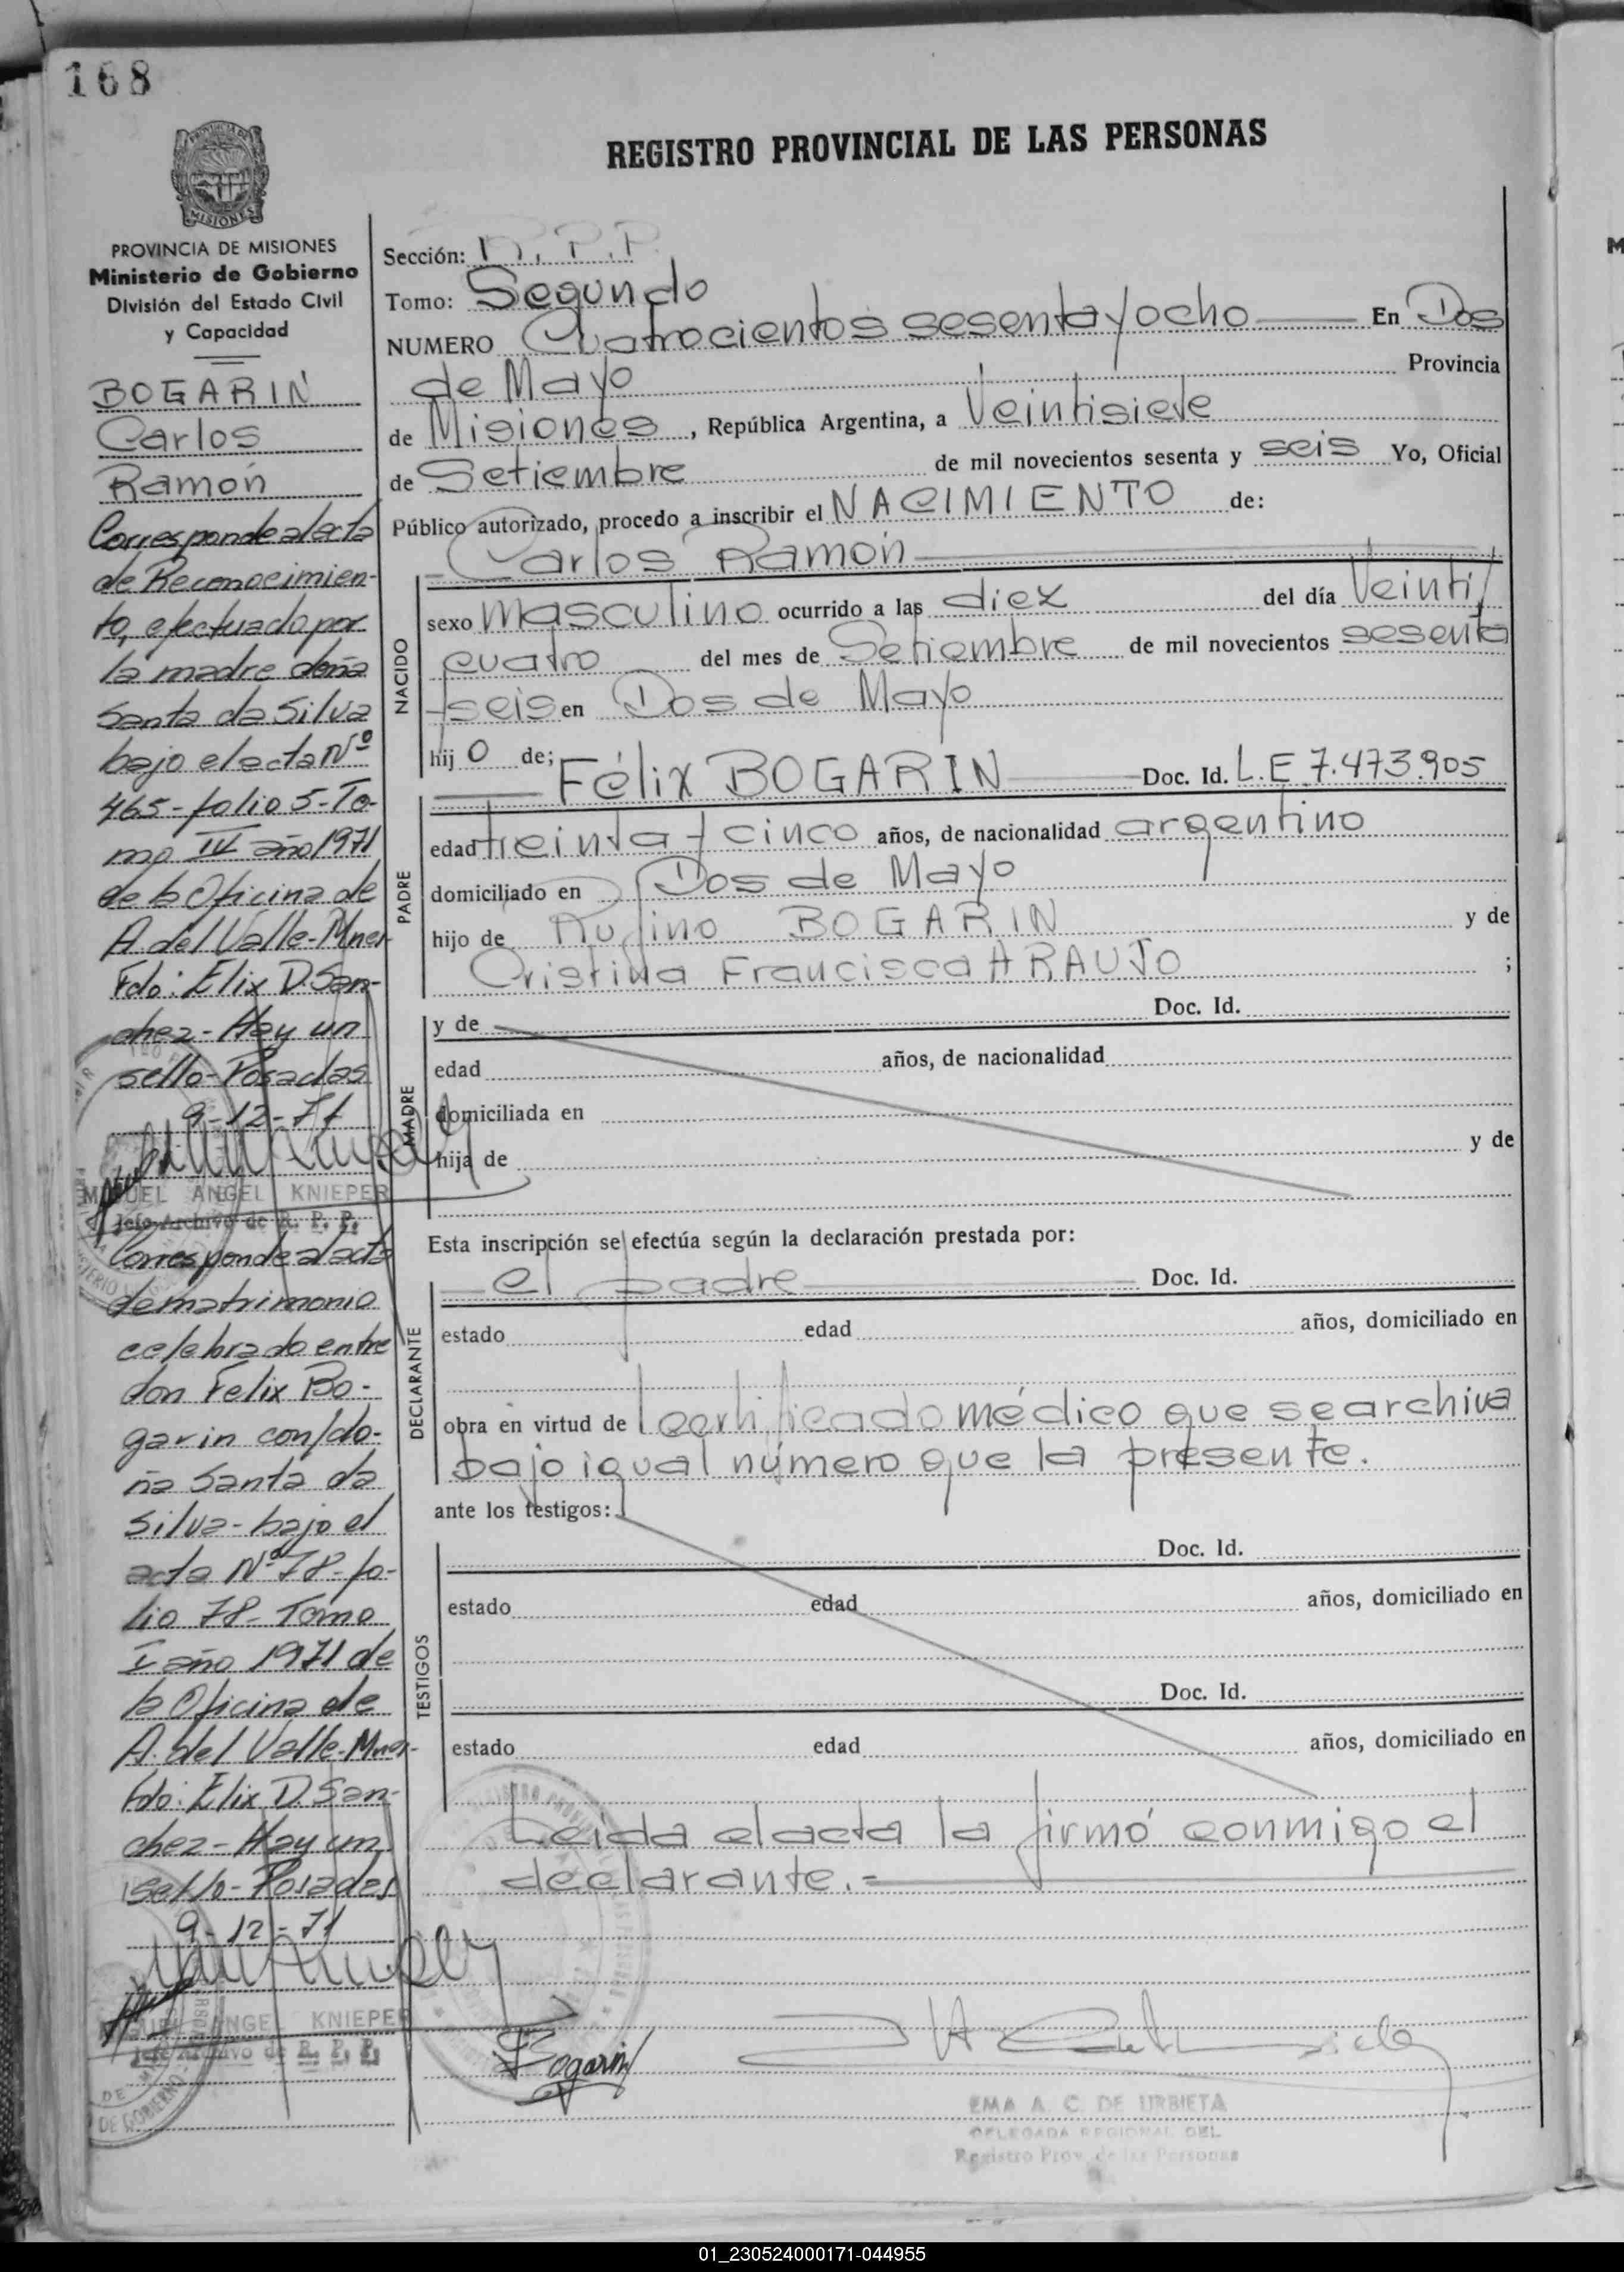 168
PROVINCIA DE MISIONES
Ministerio de Gobierno
División del Estado Civil
y Capacidad
BOGARIN
Carlos
Ramón
Corresponde al acta
de Reconocimien-
to, efectuado por
la madre doña
Santa da Silva
bajo el acta Nº
465-folio 5-To-
mo IV año 1971
de la Oficina de
A. del Valle-Mnes-
Fdo: Elix D. San-
chez-Hay un
sello-Posadas
9-12-71
MIGUEL ANGEL KNIEPER
Jefe Archivo de R. P. P.
Corresponde al acta
de matrimonio
celebrado entre
don Felix Bo-
garin con/do-
ña Santa da
Silva-bajo el
acta Nº 78-fo-
lio 78-Tomo
I año 1971 de
la Oficina de
A. del Valle-Mnes-
Fdo: Elix D. San-
chez-Hay un
sello-Posadas
9-12-71
MIGUEL ANGEL KNIEPER
Jefe Archivo de R. P. P.
REGISTRO PROVINCIAL DE LAS PERSONAS
Sección: . P. P.
Tomo: Segundo
NUMERO Cuatrocientos sesenta y ocho En Dos
de Mayo Provincia
de Misiones, República Argentina, a Veintisiete
de Setiembre de mil novecientos sesenta y seis Yo, Oficial
Público autorizado, procedo a inscribir el NACIMIENTO de:
Carlos Ramón
NACIDO
sexo masculino ocurrido a las diez del día Veinti
cuatro del mes de Setiembre de mil novecientos sesenta
y seis en Dos de Mayo
hijo de; Félix BOGARIN Doc. Id. L.E 7.473.905
PADRE
edad treinta y cinco años, de nacionalidad argentino
domiciliado en Dos de Mayo
hijo de Rufino BOGARIN y de
Cristina Francisca ARAUJO ;
MADRE
y de Doc. Id.
edad años, de nacionalidad
domiciliada en
hija de y de
Esta inscripción se efectúa según la declaración prestada por:
el padre Doc. Id.
DECLARANTE
estado edad años, domiciliado en
obra en virtud de certificado médico que se archiva
bajo igual número que la presente.
ante los testigos:
TESTIGOS
Doc. Id.
estado edad años, domiciliado en
Doc. Id.
estado edad años, domiciliado en
Leida el acta la firmó conmigo el
declarante.=
Bogarin
EMA A. C. DE URBIETA
DELEGADA REGIONAL DEL
Registro Prov. de las Personas
01_230524000171-044955